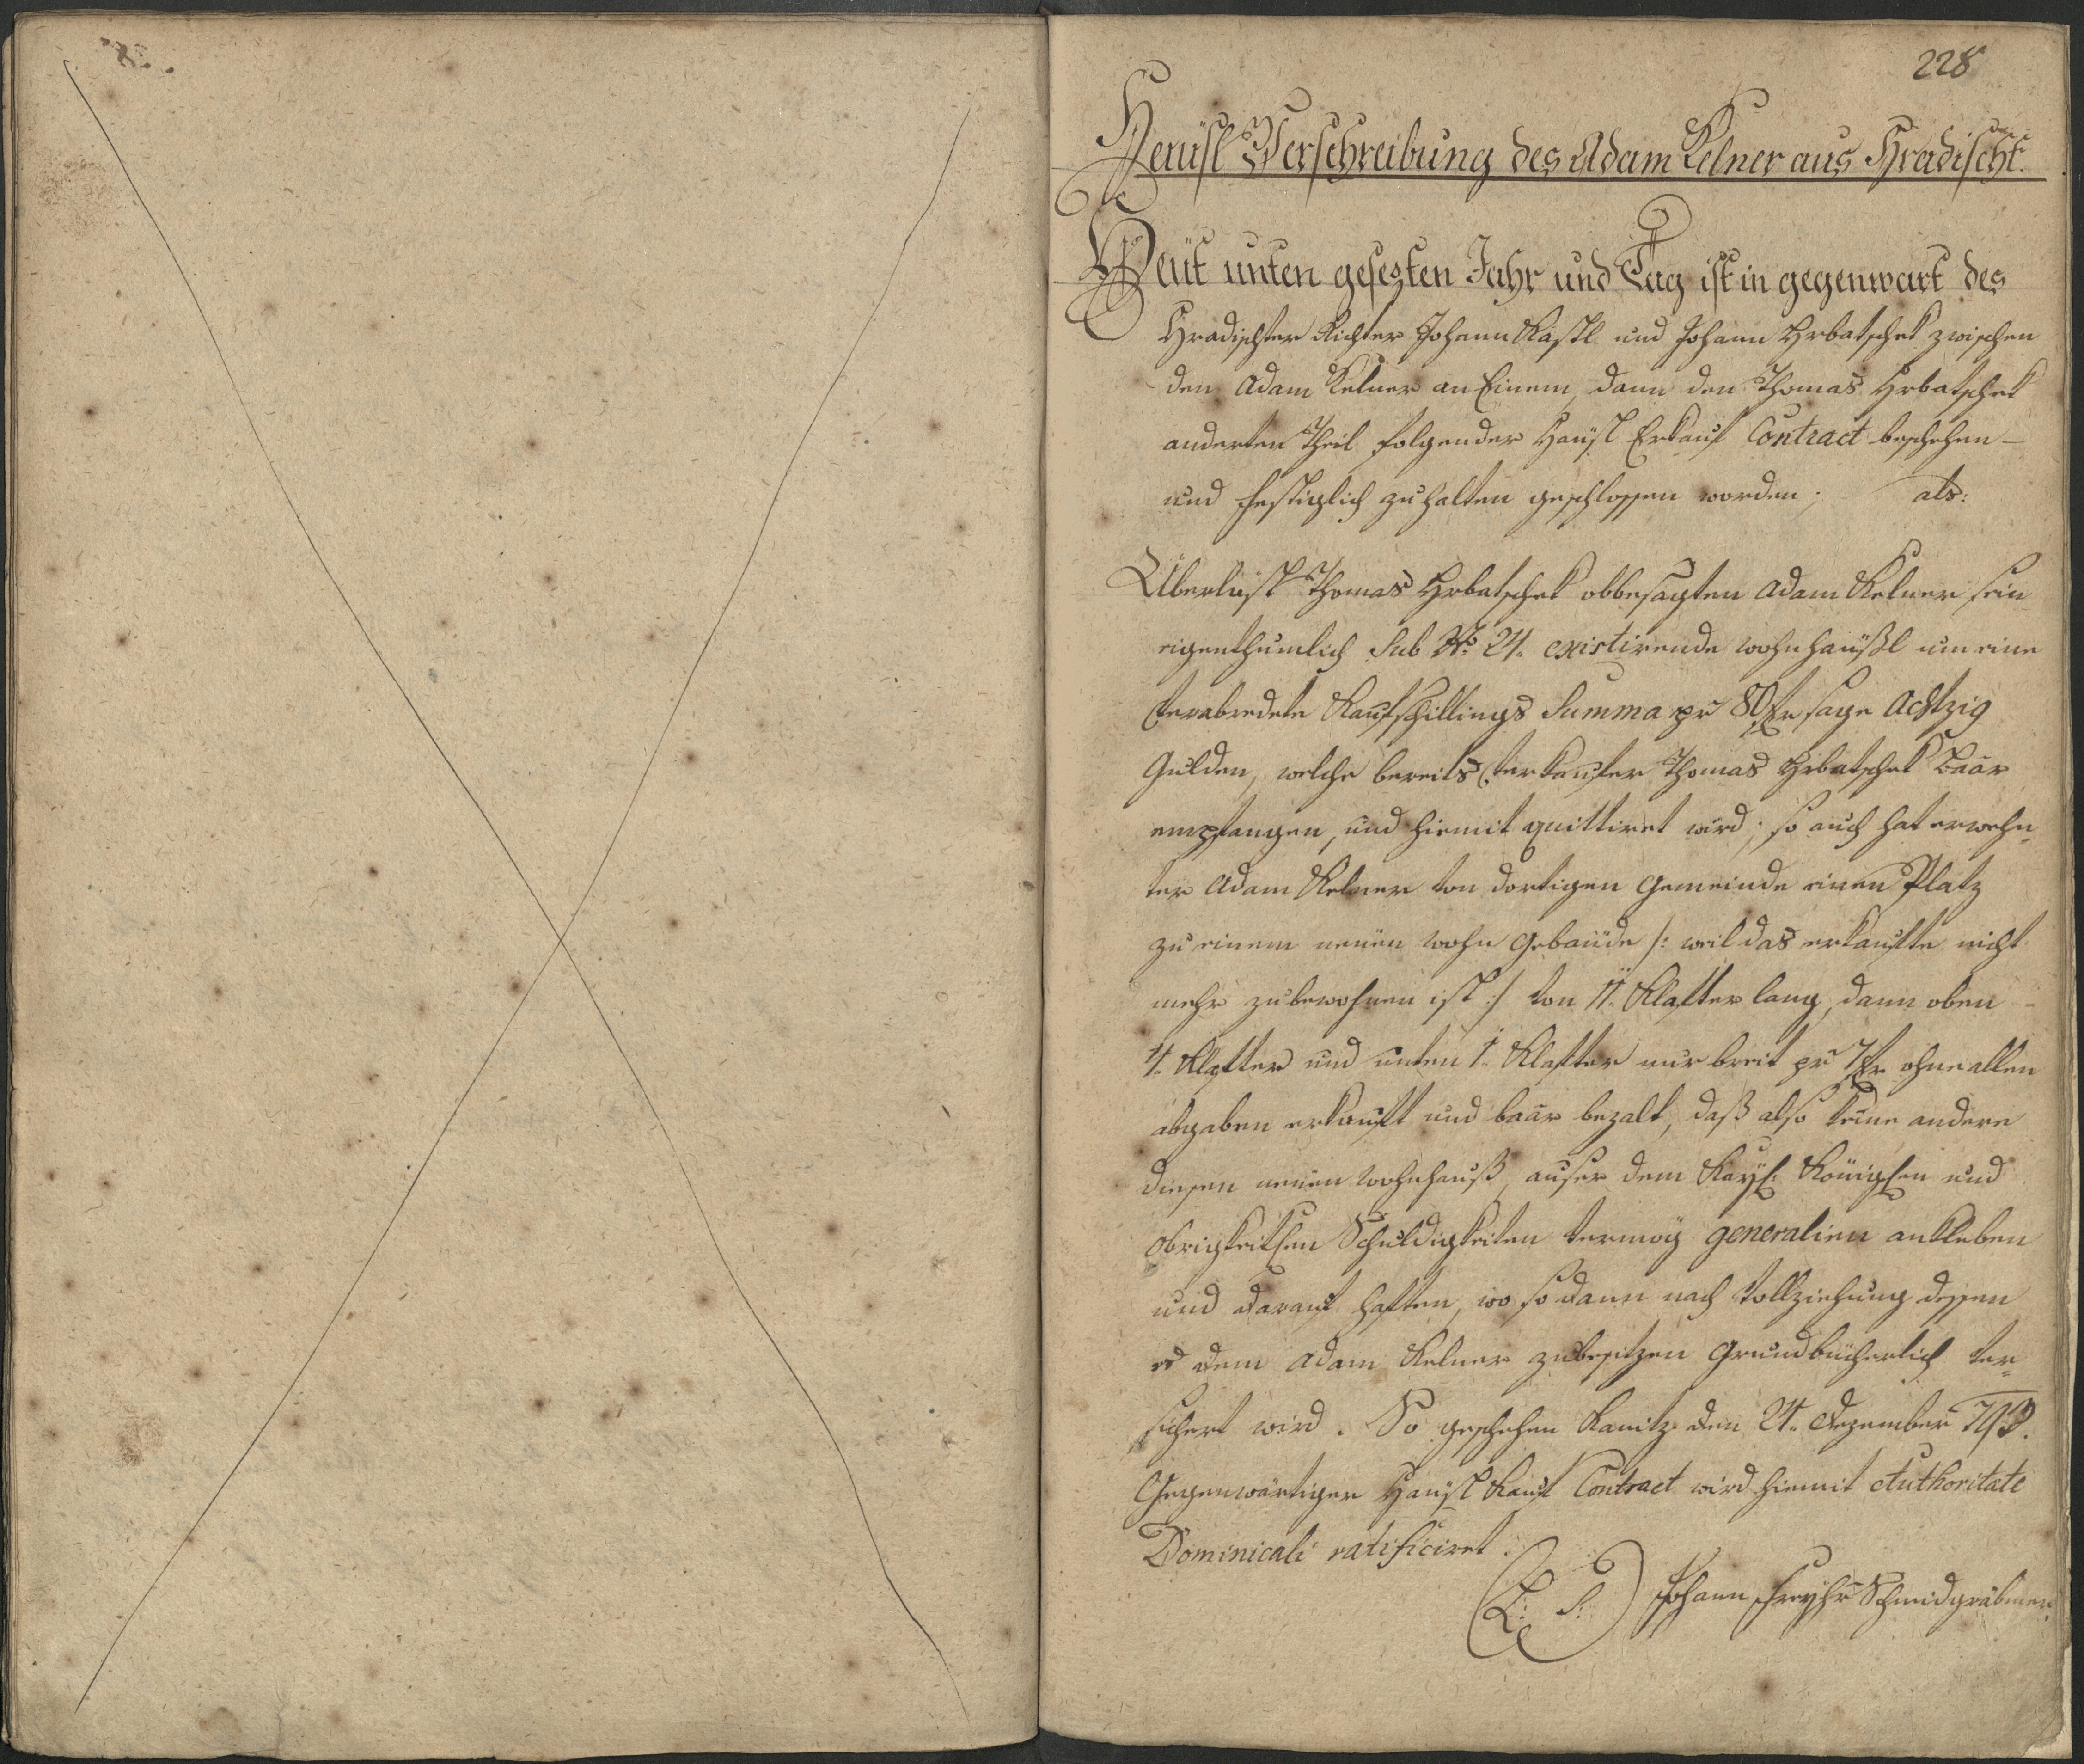 228
Heüsl Verschreibung des Adam Kelner aus Hradischt.
Heüt unten gesezten Jahr und Tag ist in gegenwart des
Hradischter Richter Johann Kastl und Johann Hrbatschek zwischen
den Adam Kelner an Einem, dann den Thomas Hrbatschek
anderten Theil folgender Haüsl Erkauf Contract beschehen –
und festiglich zuhalten geschlossen worden; als:
Uberläst Thomas Hrbatschek obbesagten Adam Kelner sein
eigenthumlich Sub No 24. existirende wohnhaüßl um eine
verabredete Kaufschillings Summa pr 80 fr sage Achtzig
Gulden, welche bereits Verkaufer Thomas Hrbatschek Baar
empfangen, und hiemit quittiret wird; so auch hat erwehn„
ter Adam Kelner von dortigen Gemeinde einen Platz
zu einem neüen wohn Gebaüde /: weil das erkaufte nicht
mehr zu bewohnen ist :/ von 11. Klafter lang, dann oben –
4. Klafter und unten 1. Klafter nur breit pr 7 fr ohne allen
abgaben erkauft und baar bezalt, daß also keine andere
diesen neüen wohnhauß, auser dem Kayl: Königlen und
Obrigkeitlen Schuldigkeiten vermög generalien ankleben
und darauf haften, wo sodann nach Vollziehung dessen
es dem Adam Kelner zubesitzen Grundbücherlich ver„
sichert wird. So geschehen Kanitz den 24. Dezember 793.
Gegenwärtiger Haüsl Kauf Contract wird hiemit Authoritate
Dominicali ratificiret.
(L: S:) Johann Freyhr Schmidgräbner